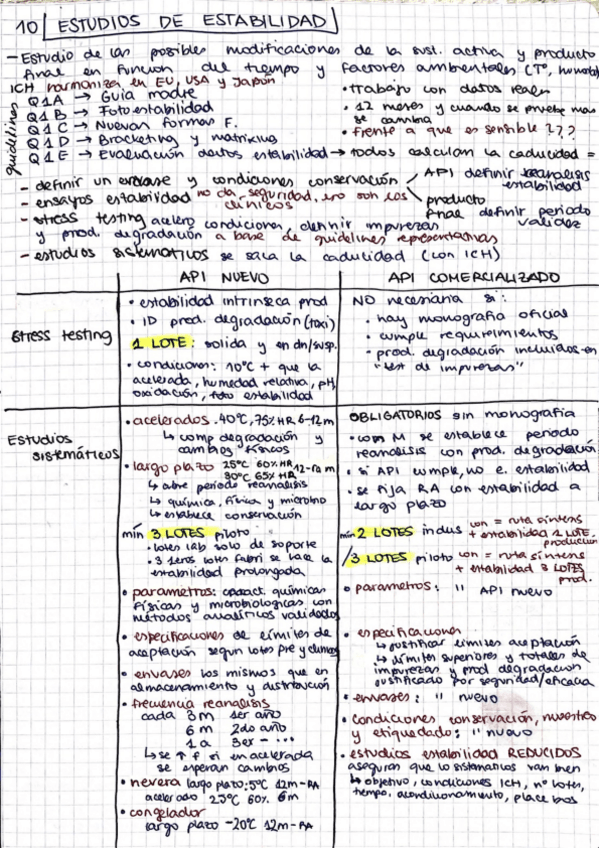 10 ESTUDIOS DE ESTABILIDAD
- Estudio de las posibles modificaciones de la sust. activa y producto
final en funcion del tiempo y factores ambientales (Tª, humedad
ICH harmoniza en EU, USA y Japón
guidelines
Q1A → Guía madre
Q1B → Fotoestabilidad
Q1C → Nuevas formas F.
Q1D → Bracketing y matrixing
Q1E → Evaluación datos estabilidad → todos calculan la caducidad =
• trabajo con datos reales
• 12 meses y cuando se pruebe mas
se cambia
• frente a que es sensible ???
- definir un envase y condiciones conservación
- ensayos estabilidad no da seguridad, eso son los
clínicos
API definir reanalisis
estabilidad
producto
final definir periodo
validez
- stress testing acelero condiciones, definir impurezas
y prod. degradación a base de guidelines representativas
- estudios sistematicos se saca la caducidad (con ICH)
API NUEVO
API COMERCIALIZADO
Stress testing
• estabilidad intrinseca prod
• ID prod. degradación (toxi)
1 LOTE: solida y en dn/susp.
• condiciones: 10ºC + que la
acelerada, humedad relativa, pH,
oxidación, foto estabilidad
NO necesaria si:
• hay monografia oficial
• cumple requerimientos
• prod. degradación incluidos en
"test de impurezas"
Estudios
sistemáticos
• acelerados 40ºC, 75% HR, 6-12m
↳ comp degradación y
cambios físicos
• largo plazo 25ºC 60% HR 12-RA m
30ºC 65% HR
↳ abre periodo reanalisis
↳ química, física y microbio
↳ establece conservación
min 3 LOTES piloto
• lotes lab solo de soporte
• 3 1eros lotes fabri se hace la
estabilidad prolongada
• parametros: caract. químicas
físicas y microbiologicas con
métodos analíticos validados
• especificaciones de límites de
aceptación segun lotes pre y clinicos
• envases los mismos que en
almacenamiento y distribución
• frecuencia reanalisis
cada 3m 1er año
6m 2do año
1a 3er - ...
↳ se ↑ f si en acelerada
se esperan cambios
• nevera largo plazo: 5ºC 12m-RA
acelerado 25ºC 60% 6m
• congelador
largo plazo -20ºC 12m-RA
OBLIGATORIOS sin monografia
• con M se establece periodo
reanalisis con prod. degradación
• si API cumple, no e. estabilidad
• se fija RA con estabilidad a
largo plazo
min 2 LOTES indus con = ruta síntesis
+ estabilidad 1 LOTE
produccion
/3 LOTES piloto con = ruta síntesis
+ estabilidad 3 LOTES
prod.
• parametros: " API nuevo
• especificaciones
↳ justificar límites aceptación
↳ límites superiores y totales de
impurezas y prod degradacion
justificado por seguridad/eficacia
• envases: " nuevo
• condiciones conservación, muestreo
y etiquetado: " nuevo
• estudios estabilidad REDUCIDOS
aseguras que los sistematicos van bien
↳ objetivo, condiciones ICH, nº lotes,
tiempo, acondicionamiento, placebos